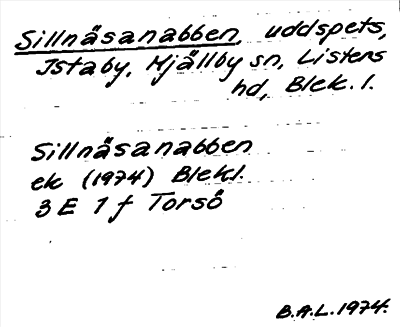 Sillnäsanabben, uddspets,
Istaby, Mjällby sn, Listers
hd, Blek. l.
Sillnäsanabben
ek (1974) Blekl.
3 E 1 f Torsö
B.A.L. 1974.